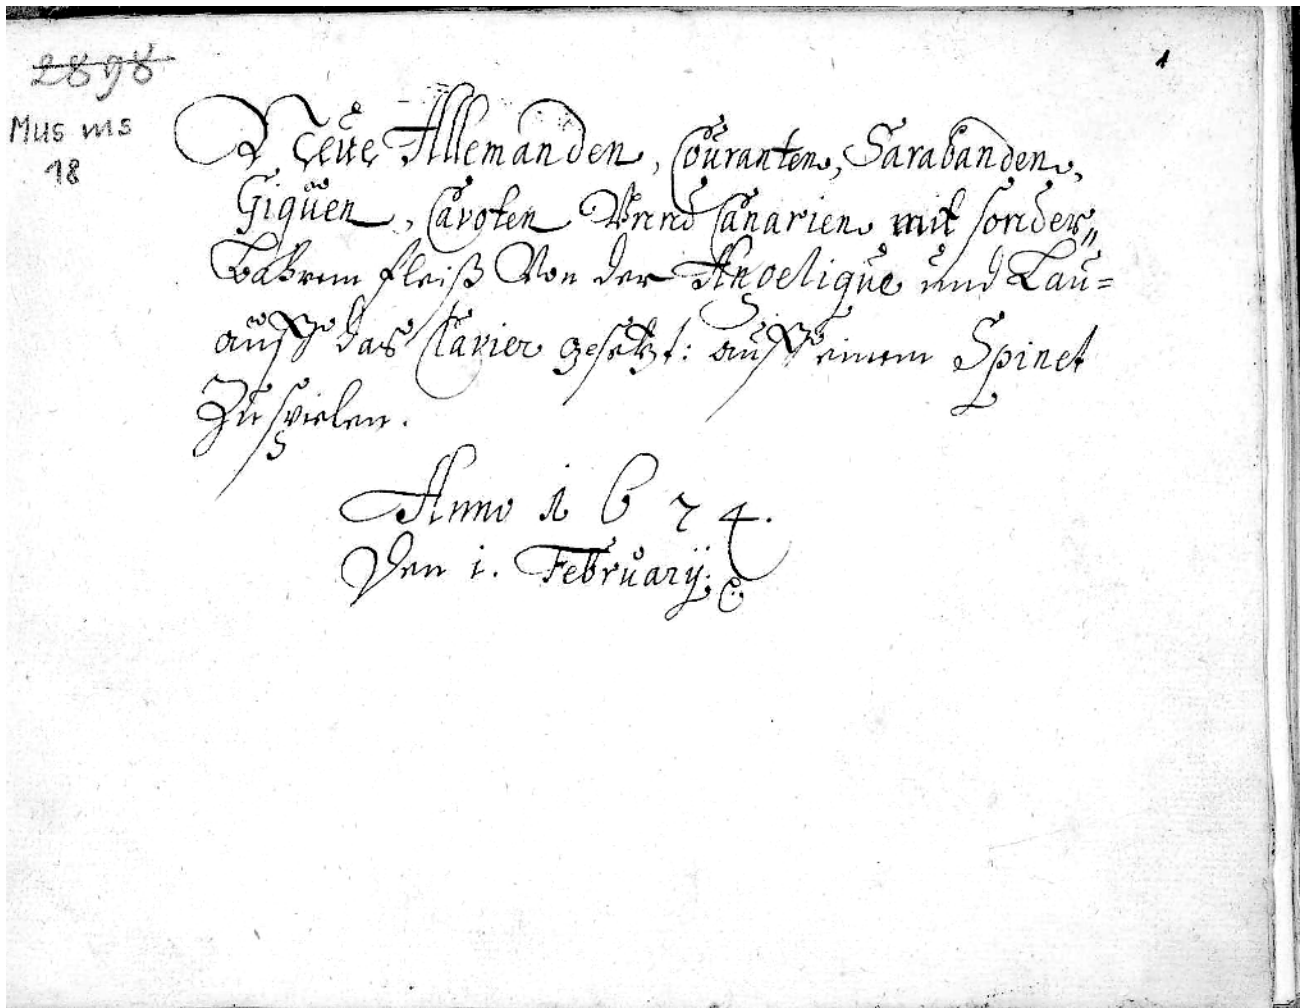 2898
1
Mus ms
18
Neue Allemanden, Couranten, Sarabanden,
Giquen, Cavoten Vnnd Canarien mit sonder„
bahrem fleiß Von der Angelique und Lau=
auff das Clavier gesetzt: auff einem Spinet
Zu spielen.
Anno 1674.
Den 1. February.